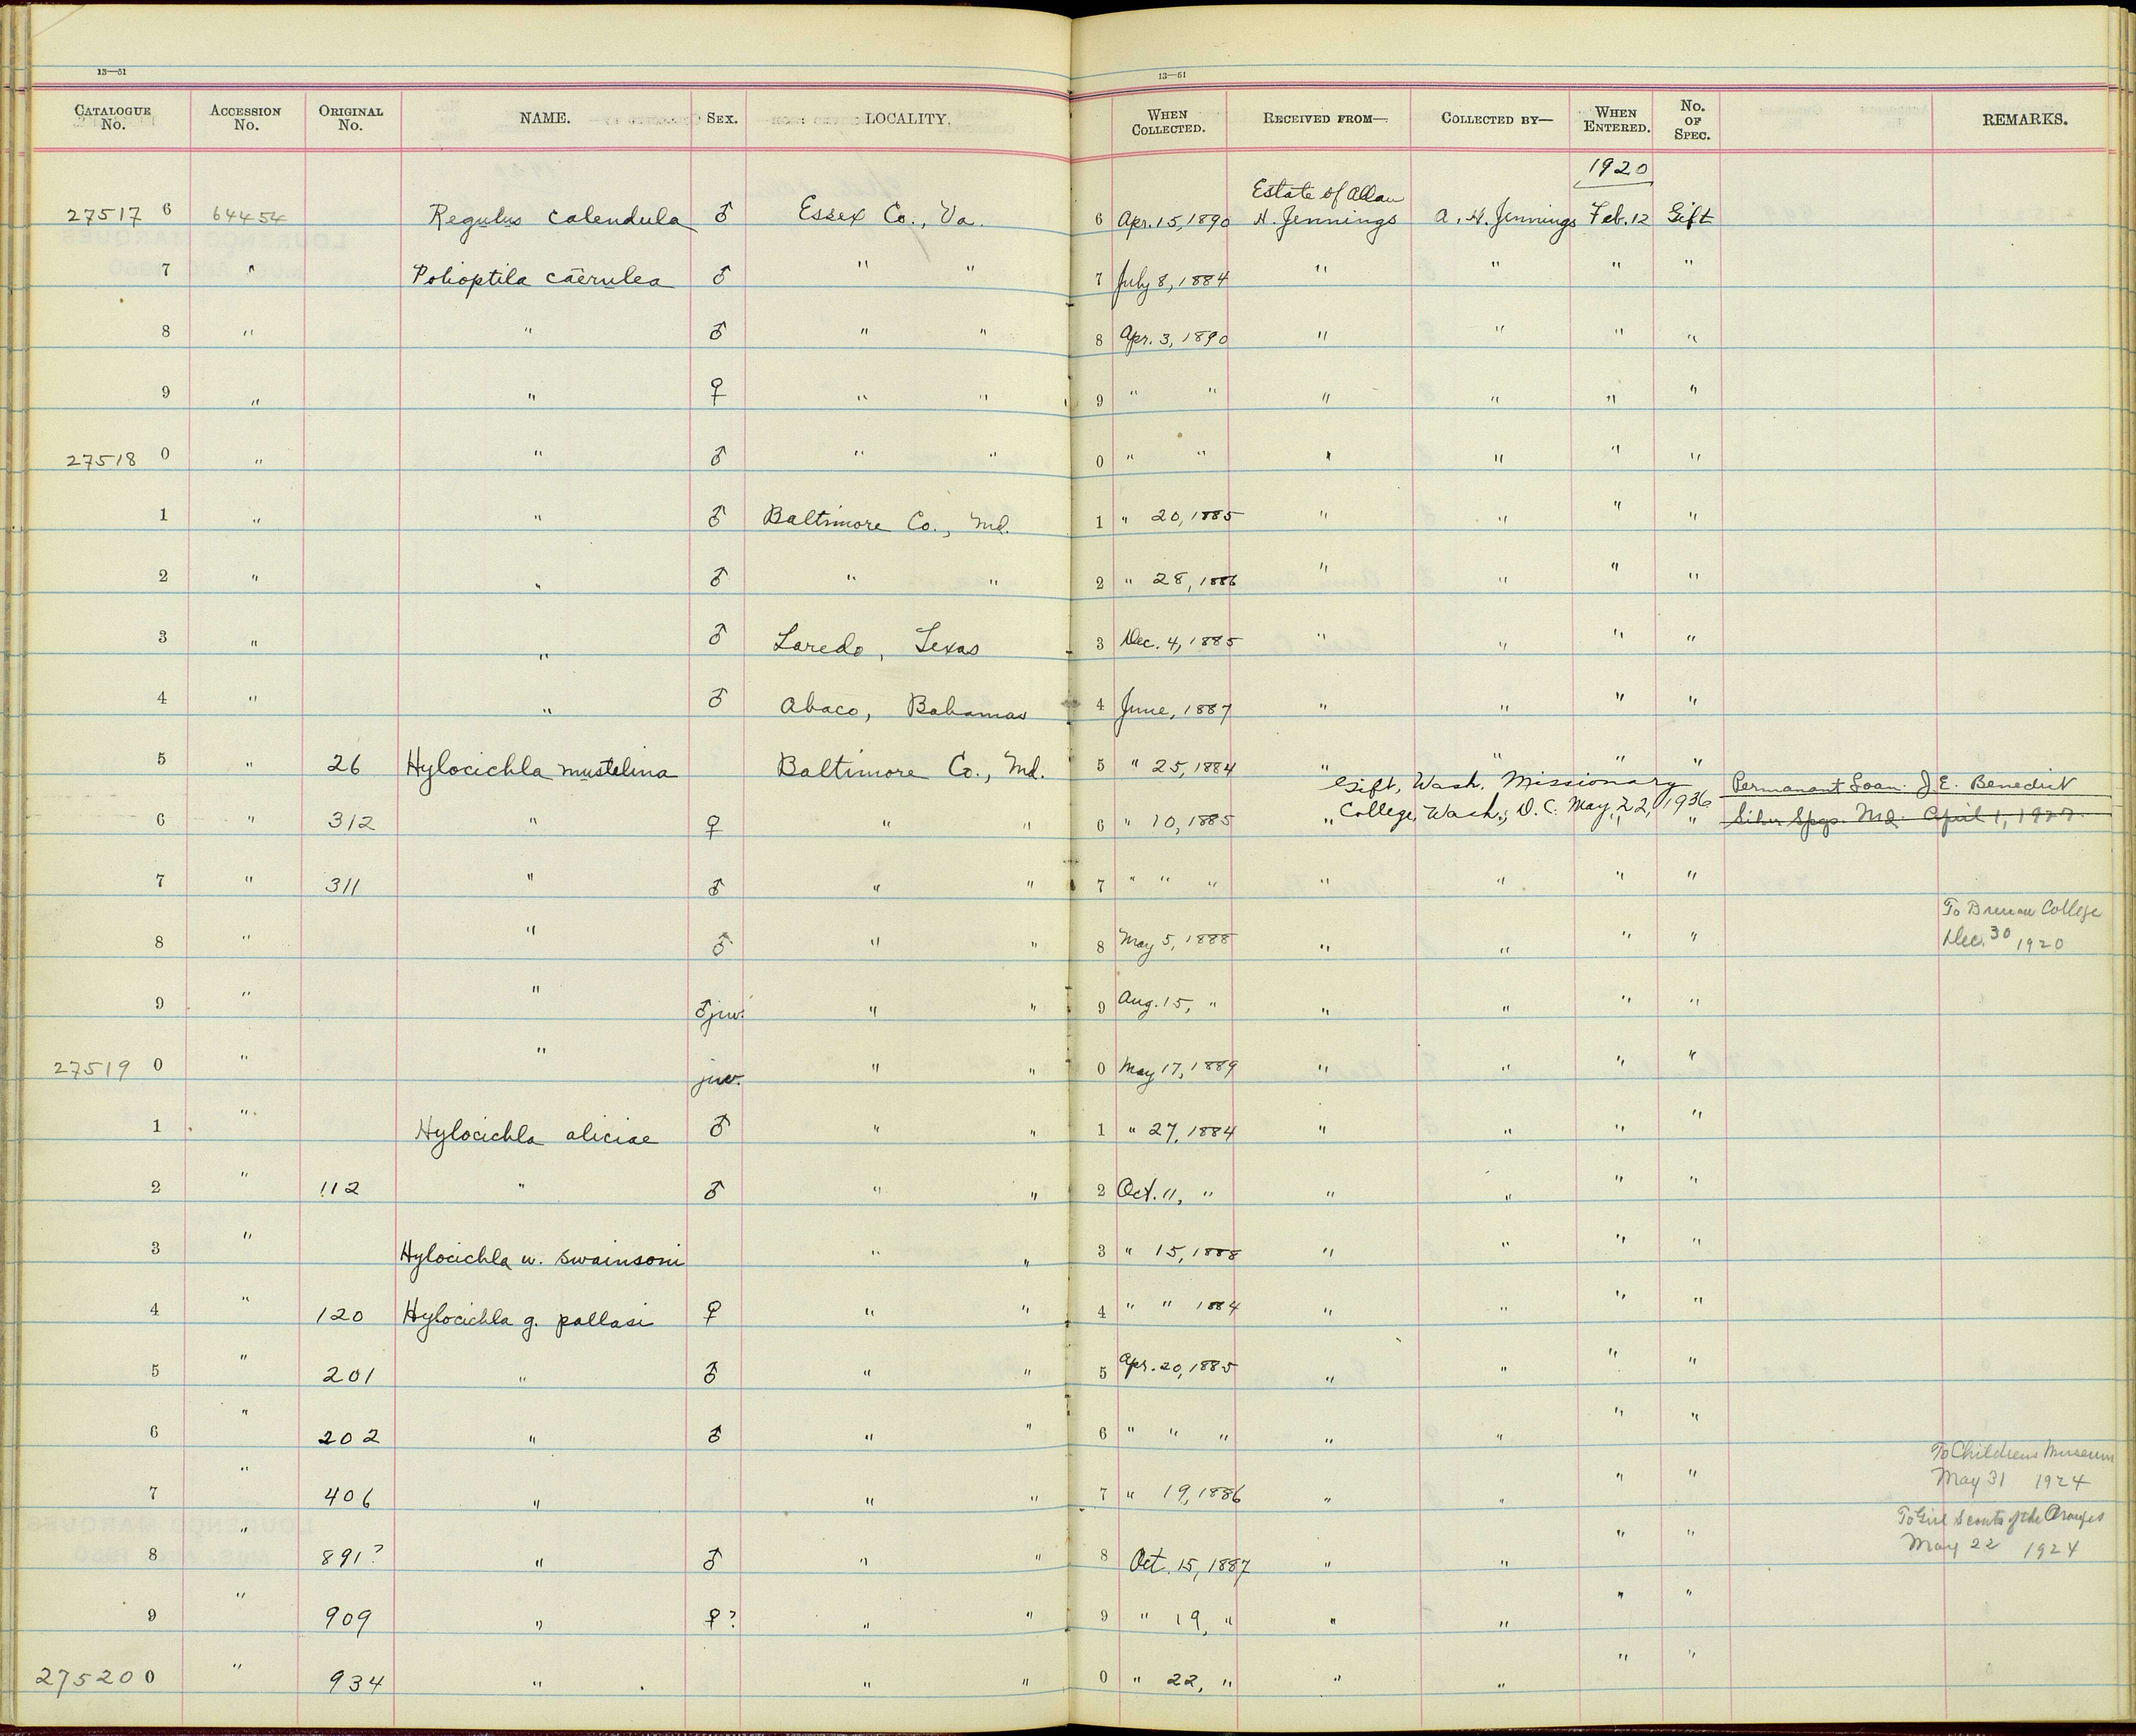 13—51 13—51
CATALOGUE No. ACCESSION No. ORIGINAL No. NAME. SEX. LOCALITY. WHEN COLLECTED. RECEIVED FROM— COLLECTED BY— WHEN ENTERED. No. OF SPEC. REMARKS.
1920
Estate of Allan
27517 6 64454 Regulus calendula ♂ Essex Co., Va. 6 Apr. 15, 1890 H. Jennings A. H. Jennings Feb. 12 Gift
7 " Polioptila caerulea ♂ " " 7 July 8, 1884 " " " "
8 " " ♂ " " 8 Apr. 3, 1890 " " " "
9 " " ♀ " " 9 " " " " " "
27518 0 " " ♂ " " 0 " " " " " "
1 " " ♂ Baltimore Co., Md. 1 " 20, 1885 " " " "
2 " " ♂ " " 2 " 28, 1886 " " " "
3 " " ♂ Laredo, Texas 3 Dec. 4, 1885 " " " "
4 " " ♂ Abaco, Bahamas 4 June, 1887 " " " "
5 " 26 Hylocichla mustelina Baltimore Co., Md. 5 " 25, 1884 " " " "
Gift, Wash. Missionary Permanant Loan. J. E. Benedict
College, Wash., D.C. May 22, 1936 Silver Spgs. Md. April 1, 1927
6 " 312 " ♀ " " 6 " 10, 1885 " " "
7 " 311 " ♂ " " 7 " " " " " " "
To Brenau College
8 " " ♂ " " 8 May 5, 1888 " " " " Dec. 30 1920
9 " " ♂ juv. " " 9 Aug. 15, " " " " "
27519 0 " " juv. " " 0 May 17, 1889 " " " "
1 " Hylocichla aliciae ♂ " " 1 " 27, 1884 " " " "
2 " 112 " ♂ " " 2 Oct. 11, " " " " "
3 " Hylocichla u. swainsoni " " 3 " 15, 1888 " " " "
4 " 120 Hylocichla g. pallasi ♀ " " 4 " " 1884 " " " "
5 " 201 " ♂ " " 5 Apr. 20, 1885 " " " "
6 " 202 " ♂ " " 6 " " " " " " "
To Childrens Museum
7 " 406 " " " 7 " 19, 1886 " " " " May 31 1924
To Girl Scouts of the Oranges
8 " 891? " ♂ " " 8 Oct. 15, 1887 " " " " May 22 1924
9 " 909 " ♀? " " 9 " 19, " " " " "
27520 0 " 934 " " " 0 " 22, " " " " "